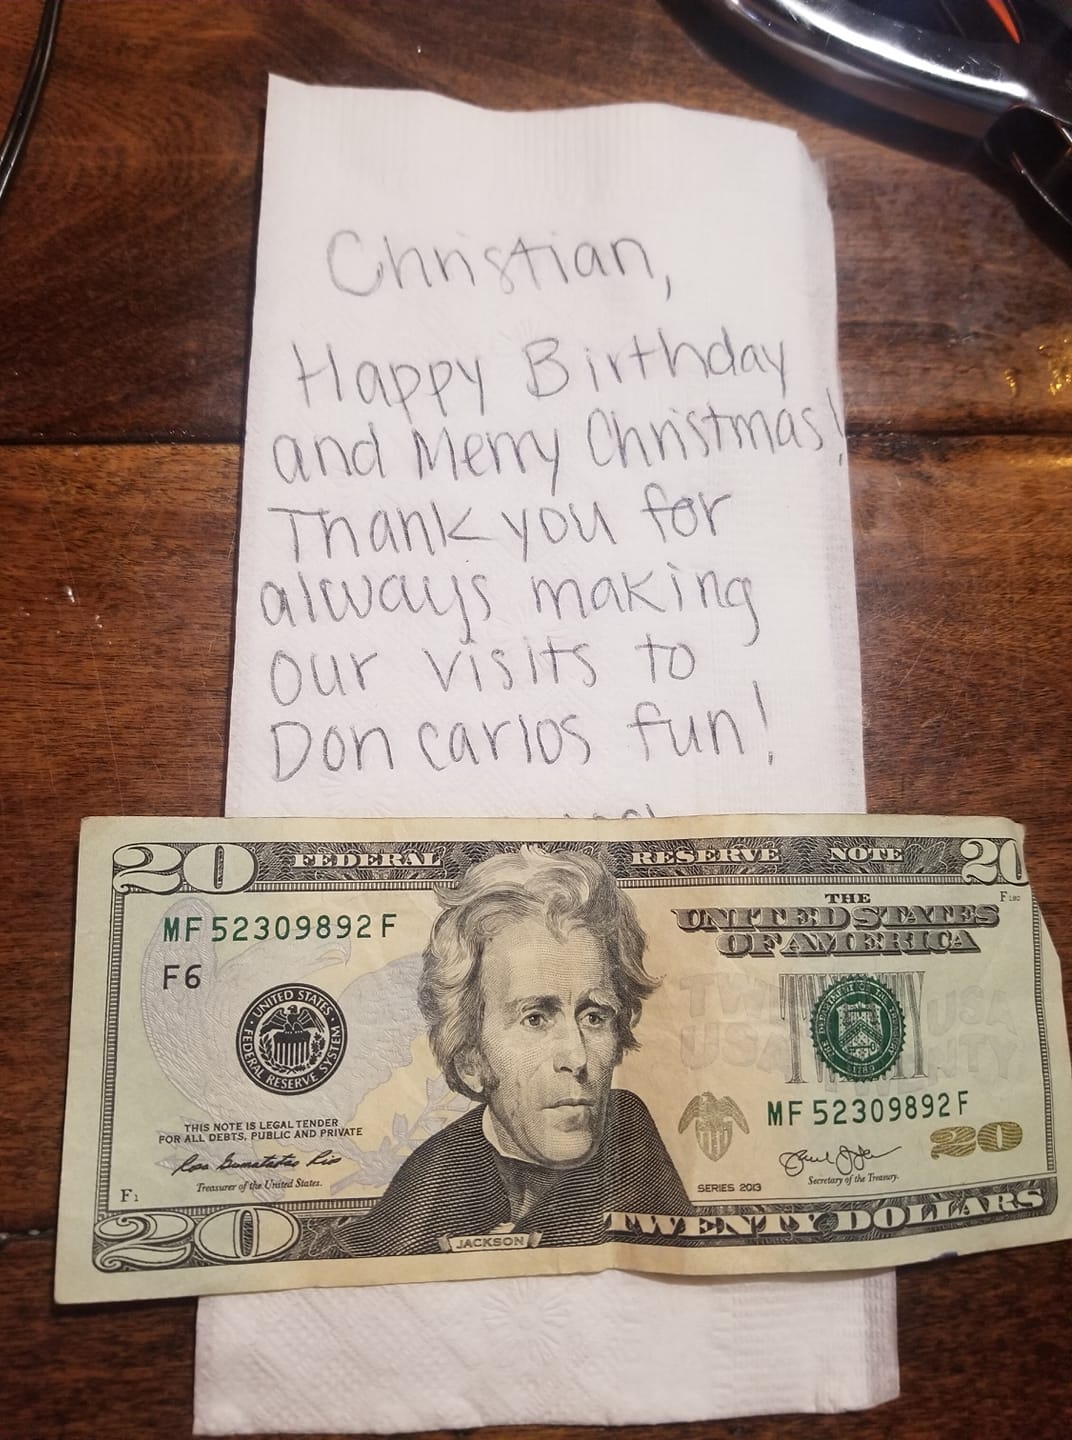 Christian,
Happy Birthday
and Merry Christmas!
Thank you for
always making
our visits to
Don carlos fun!
20 FEDERAL RESERVE NOTE 20
THE
UNITED STATES
OF AMERICA
MF 52309892 F
F6
UNITED STATES
FEDERAL RESERVE SYSTEM
THIS NOTE IS LEGAL TENDER
FOR ALL DEBTS, PUBLIC AND PRIVATE
Treasurer of the United States.
F1
20
JACKSON
MF 52309892 F
20
SERIES 2013
Secretary of the Treasury.
TWENTY DOLLARS